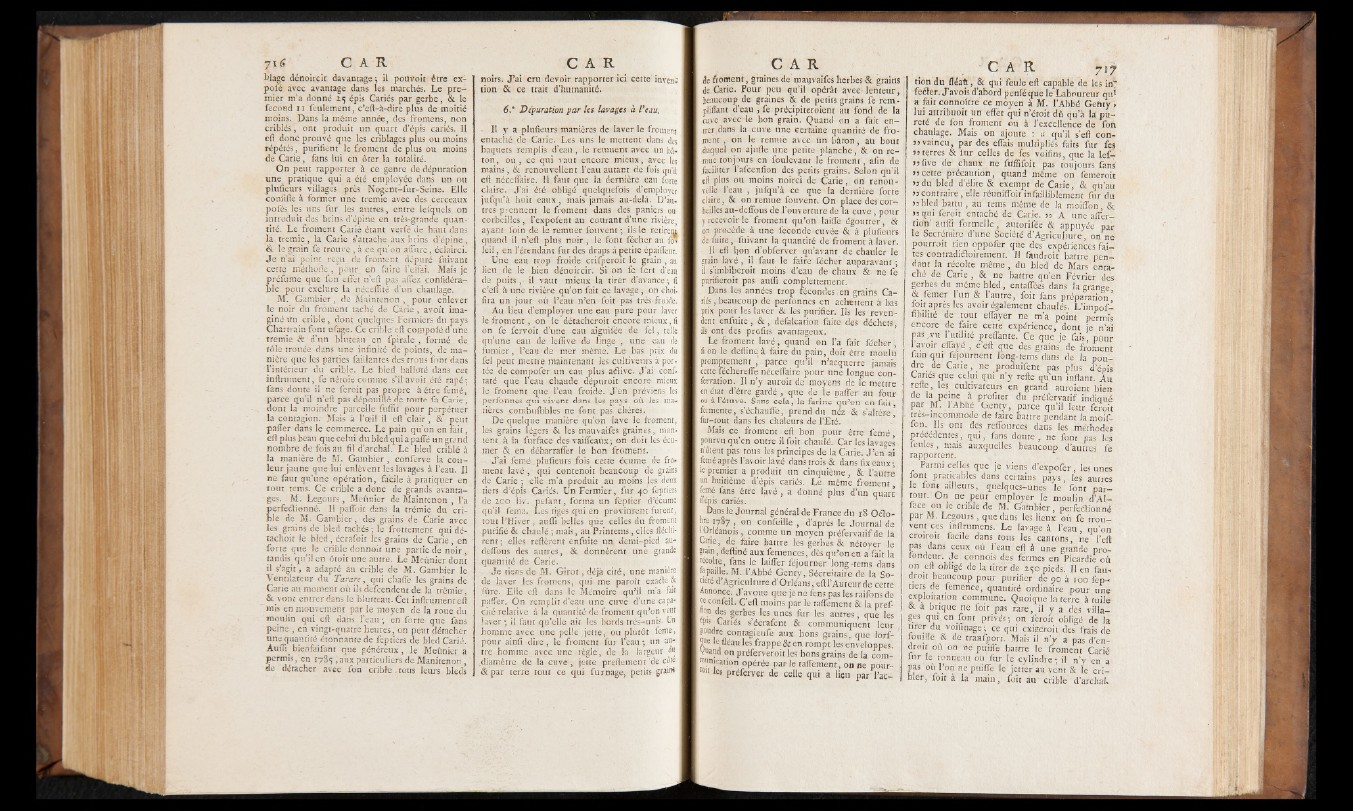 716 C A R
blage dénoircit davantage ; il pouvoit être ex-
posé avec avantage dans les marchés. Le pre-
mier m'a donné 25 épis Cariés par gerbe, & le
second 11 seulement, c'est-à-dire plus de moitié
moins. Dans la même année, des fromens, non
criblés, ont produit un quart d'épis cariés. Il
est donc prouvé que les criblages plus ou moins
répétés, purifient le froment de plus ou moins
de Carie, sans lui en ôter la totalité.
On peut rapporter à ce genre de dépuration
une pratique qui a été employée dans un ou
plusieurs villages près Nogent-sur-Seine. Elle
consiste à former une tremie avec des cerceaux
posés les uns sur les autres, entre lesquels on
introduit des brins d'épine en très-grande quan-
tité. Le froment Carié étant versé de haut dans
la tremie, la Carie s'attache aux brins d'épine,
& le grain se trouve, à ce qu'on assure, éclairci.
Je n'ai point reçu de froment dépuré suivant
cette méthode, pour en faire l'essai. Mais je
présume que son effet n'est pas assez considéra-
ble pour exclure la nécessité d'un chaulage.
M. Gambier, de Maintenon, pour enlever
le noir du froment taché de Carie, avoit ima-
giné un crible, dont quelques Fermiers du pays
Chartrain font usage. Ce crible est composé d'une
tremie & d'un bluteau en spirale, formé de
tôle trouée dans une infinité de points, de ma-
nière que les parties saillantes des trous sont dans
l'intérieur du crible. Le bled balloté dans cet
instrument, se nétoie comme s'il avoit été rapé :
sans doute il ne seroit pas propre à être semé,
parce qu'il n'est pas dépouillé de toute sa Carie,
dont la moindre parcelle suffit pour perpétuer
la contagion. Mais à l'œil il est clair, & peut
passer dans le commerce. Le pain qu'on en fait,
est plus beau que celui du bled qui a passé un grand
nombre de fois au fil d'archal. Le bled criblé à
la manière de M. Gambier, conserve la cou-
leur jaune que lui enlèvent les lavages à l'eau. Il
ne faut qu'une opération, facile à pratiquer en
tout tems. Ce crible a donc de grands avanta-
ges. M. Legours, Meûnier de Maintenon, l'a
perfectionné. Il passoit dans la trémie du cri-
ble de M. Gambier, des grains de Carie avec
les grains de bled tachés ; le frottement qui dé-
tachoit le bled, écrasoit les grains de Carie, en
sorte que le crible donnoit une partie de noir,
tandis qu'il en ôtoit une autre. Le Meûnier dont
il s'agit, a adapté au crible de M. Gambier le
Ventilateur du Tarare, qui chasse les grains de
Carie au moment où ils descendent de la trémie,
& vont entrer dans le bluteau. Cet instrument est
mis en mouvement par le moyen de la roue du
moulin qui est dans l'eau ; en sorte que sans
peine, en vingt-quatre heures, on peut détacher
une quantité étonnante de septiers de bled Carié.
Aussi bienfaisant que généreux, le Meûnier a
permis, en 1785, aux particuliers de Maintenon,
de détacher avec son crible tous leurs bleds
C A R
noirs. J'ai cru devoir rapporter ici cette inven-
tion & ce trait d'humanité.
6.° Dépuration par les lavages à l'eau.
Il y a plusieurs manières de laver le froment
entaché de Carie. Les uns le mettent dans des
baquets remplis d'eau, le remuent avec un bâ-
ton, ou, ce qui vaut encore mieux, avec les
mains, & renouvellent l'eau autant de fois qu'il
est nécessaire. Il faut que la dernière eau sorte
claire. J'ai été obligé quelquefois d'employer
jusqu'à huit eaux, mais jamais au-delà. D'au-
tres prennent le froment dans des paniers ou
corbeilles, l'exposent au courant d'une rivière,
ayant soin de le remuer souvent ; ils le retirent
quand il n'est plus noir, le font sécher au so-
leil, en l'étendant sur des draps à petite épaisseur.
Une eau trop froide crisperoit le grain, au
lieu de le bien dénoircir. Si on se sert d'eau
de puits, il vaut mieux la tirer d'avance ; si
c'est à une rivière qu'on fait ce lavage, on choi-
sira un jour où l'eau n'en soit pas très-froide.
Au lieu d'employer une eau pure pour laver
le froment, on le détacheroit encore mieux, si
on se servoit d'une eau aiguisée de sel, telle
qu'une eau de lessive du linge, une eau de
fumier, l'eau de mer même. Le bas prix du
sel peut mettre maintenant les cultivateurs à por-
tée de composer un eau plus active. J'ai cons-
taté que l'eau chaude dépuroit encore mieux
le froment que l'eau froide. J'en préviens les
personnes qui vivent dans les pays où les ma-
tières combustibles ne sont pas chères.
De quelque manière qu'on lave le froment,
les grains légers & les mauvaises graines, mon-
tent à la surface des vaisseaux ; on doit les écu-
mer & en débarrasser le bon froment.
J'ai semé plusieurs fois cette écume de fro-
ment lavé, qui contenoit beaucoup de grains
de Carie ; elle m'a produit au moins les deux
tiers d'épis Cariés. Un Fermier, sur 40 septiers
de 200 liv. pesant, forma un septier d'écume
qu'il sema. Les tiges qui en provinrent furent,
tout l'Hiver, aussi belles que celles du froment
purifié & chaulé ; mais, au Printems, elles fléchi-
rent ; elles restèrent ensuite un demi-pied au-
dessous des autres, & donnèrent une grande
quantité de Carie.
Je tiens de M. Girot, déjà cité, une manière
de laver les fromens, qui me paroît exacte &
sûre. Elle est dans le Mémoire qu'il m'a fait
passer. On remplit d'eau une cuve d'une capa-
cité relative à la quantité de froment qu'on veut
laver ; il faut qu'elle ait les bords très-unis. Un
homme avec une pelle jette, ou plutôt sème,
pour ainsi dire, le froment sur l'eau ; un au-
tre homme avec une règle, de la largeur du
diamètre de la cuve, jette prestement de côté
& par terre tout ce qui surnage, petits grains
C A R
de froment, graines de mauvaises herbes & grains
de Carie. Pour peu qu'il opérât avec lenteur,
beaucoup de graines & de petits grains se rem-
plissant d'eau, se précipiteroient au fond de la
cuve avec le bon grain. Quand on a fait en-
trer dans la cuve une certaine quantité de fro-
ment, on le remue avec un bâton, au bout
duquel on ajuste une petite planche, & on re-
mue toujours en soulevant le froment, afin de
faciliter l'ascension des petits grains. Selon qu'il
est plus ou moins noirci de Carie, on renou-
velle l'eau, jusqu'à ce que la dernière sorte
claire, & on remue souvent. On place des cor-
beilles au-dessous de l'ouverture de la cuve, pour
y recevoir le froment qu'on laisse égoutter, &
on procède à une seconde cuvée & à plusieurs
de suite, suivant la quantité de froment à laver.
Il est bon d'observer qu'avant de chauler le
grain lavé, il faut le faire sécher auparavant ;
il s'imbiberoit moins d'eau de chaux & ne se
purifieroit pas aussi complettement.
Dans les années trop fécondes en grains Ca-
riés, beaucoup de personnes en achettent à bas
prix pour les laver & les purifier. Ils les reven-
dent ensuite, &, défalcation faite des déchets,
ils ont des profits avantageux.
Le froment lavé, quand on l'a fait sécher,
si on le destine à faire du pain, doit être moulu
promptement, parce qu'il n'acquerre jamais
cette sécheresse nécessaire pour une longue con-
servation. Il n'y auroit de moyens de le mettre
en état d'être gardé, que de le passer au four
ou à l'étuve. Sans cela, la farine qu'on en fait,
fermente, s'échauffe, prend du nez & s'altère,
sur-tout dans les chaleurs de l'Été.
Mais ce froment est bon pour être semé,
pourvu qu'en outre il soit chaulé. Car les lavages
n'ôtent pas tous les principes de la Carie. J'en ai
semé après l'avoir lavé dans trois & dans six eaux ;
le premier a produit un cinquième, & l'autre
un huitième d'épis cariés. Le même froment,
semé sans être lavé, a donné plus d'un quart
d'épis cariés.
Dans le Journal général de France du 18 Octo-
bre 1787, on conseille, d'après le Journal de
l'Orléanois, comme un moyen préservatif de la
Carie, de faire battre les gerbes & nétoyer le
grain, destiné aux semences, dès qu'on en a fait la
récolte, sans le laisser séjourner long-tems dans
sa paille. M. l'Abbé Genty, Sécretaire de la So-
ciété d'Agriculture d'Orléans, est l'Auteur de cette
annonce. J'avoue que je ne sens pas les raisons de
ce conseil. C'est moins par le tassement & la pres-
sion des gerbes les unes sur les autres, que les
épis Cariés s'écrasent & communiquent leur
poudre contagieuse aux bons grains, que lors-
que le fléau les frappe & en rompt les enveloppes.
Quand on préserveroit les bons grains de la com-
munication opérée par le tassement, on ne pour-
roit les préserver de celle qui a lieu par l'ac-
C A R 717
tion du fléau, & qui seule est capable de les in-
fecter. J'avois d'abord pensé que le Laboureur qui
a fait connoître ce moyen à M. l'Abbé Genty,
lui attribuoit un effet qui n'étoit dû qu'à la pu-
reté de son froment ou à l'excellence de son
chaulage. Mais on ajoute : « qu'il s'est con-
» vaincu, par des essais multipliés faits sur ses
» terres & sur celles de ses voisins, que la les-
» sive de chaux ne suffisoit pas toujours sans
» cette précaution, quand même on semeroit
» du bled d'élite & exempt de Carie, & qu'au
» contraire, elle réunissoit infailliblement sur du
» bled battu, au tems même de la moisson, &
» qui seroit entaché de Carie. » A une asser-
tion aussi formelle, autorisée & appuyée par
le Secrétaire d'une Société d'Agriculture, on ne
pourroit rien opposer que des expériences fai-
tes contradictoirement. Il faudroit battre pen-
dant la récolte même, du bled de Mars enta-
ché de Carie, & ne battre qu'en Février des
gerbes du même bled, entassées dans la grange,
& semer l'un & l'autre, soit sans préparation,
soit après les avoir également chaulés. L'impos-
sibilité de tout essayer ne m'a point permis
encore de faire cette expérience, dont je n'ai
pas vu l'utilité pressante. Ce que je sais, pour
l'avoir essayé, c'est que des grains de froment
sain qui séjournent long-tems dans de la pou-
dre de Carie, ne produisent pas plus d'épis
Cariés que celui qui n'y reste qu'un instant. Au
reste, les cultivateurs en grand auroient bien
de la peine à profiter du préservatif indiqué
par M. l'Abbé Genty, parce qu'il leur seroit
très-incommode de faire battre pendant la mois-
son. Ils ont des ressources dans les méthodes
précédentes, qui, sans doute, ne sont pas les
seules, mais auxquelles beaucoup d'autres se
rapportent.
Parmi celles que je viens d'exposer, les unes
sont praticables dans certains pays, les autres
le sont ailleurs, quelques-unes le sont par-
tout. On ne peut employer le moulin d'Al-
sace ou le crible de M. Gambier, perfectionné
par M. Legours, que dans les lieux où se trou-
vent ces instrumens. Le lavage à l'eau, qu'on
croiroit facile dans tous les cantons, ne l'est
pas dans ceux où l'eau est à une grande pro-
fondeur. Je connois des fermes en Picardie où
on est obligé de la tirer de 250 pieds. Il en fau-
droit beaucoup pour purifier de 90 à 100 sep-
tiers de semence, quantité ordinaire pour une
exploitation commune. Quoique la terre à tuile
& à brique ne soit pas rare, il y a des villa-
ges qui en sont privés ; on seroit obligé de la
tirer du voisinage ; ce qui exigeroit des frais de
fouille & de transport. Mais il n'y a pas d'en-
droit où on ne puisse battre le froment Carié
sur le tonneau ou sur le cylindre ; il n'y en a
pas où l'on ne puisse le jetter au vent & le cri-
bler, soit à la main, soit au crible d'archal.